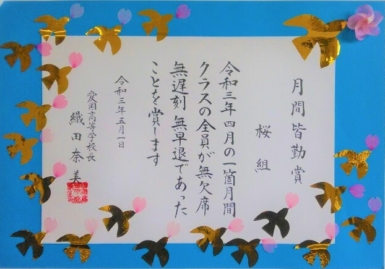 月間皆勤賞
桜組
令和三年四月の一箇月間
クラスの全員が無欠席
無遅刻 無早退であった
ことを賞します
令和三年五月一日
愛国高等学校長
織田奈美